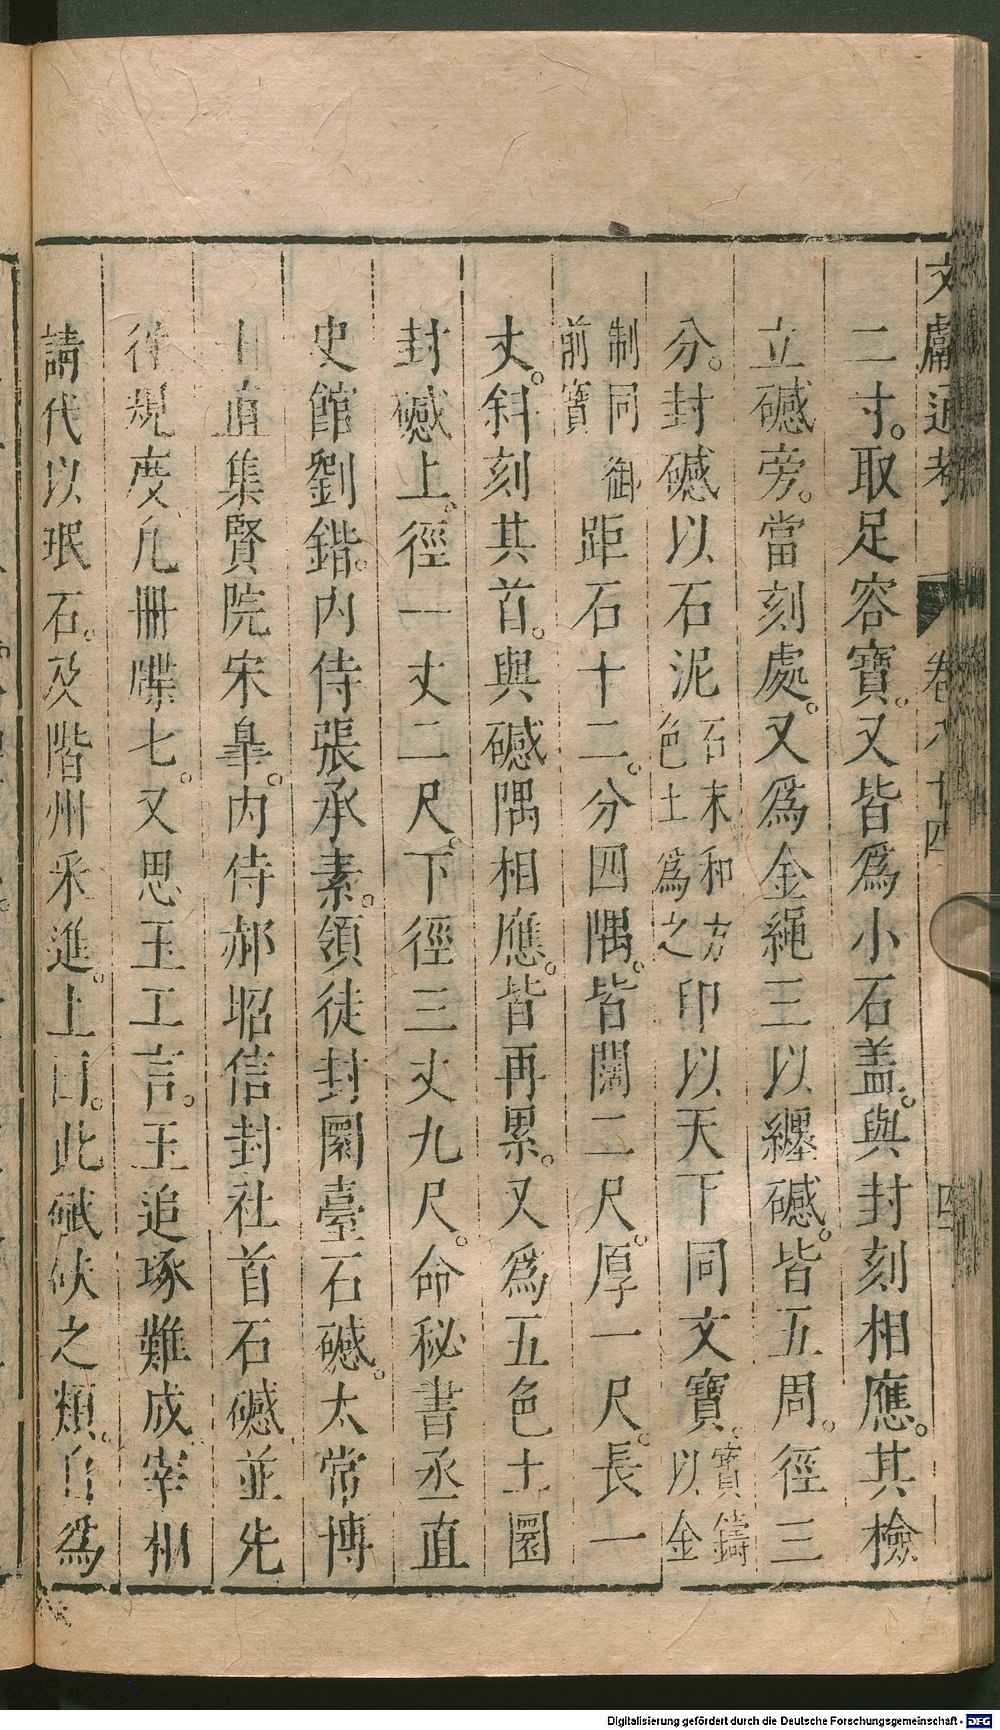 文獻通考 卷八十四 四
二寸。取足容寶。又皆爲小石盖。與封刻相應。其檢
立䃭旁。當刻處。又爲金繩三以纏䃭。皆五周。徑三
分。封䃭以石泥石末和方色土爲之印以天下同文寶。寶鑄以金
制同御前寶距石十二。分四隅。皆闊二尺。厚一尺。長一
丈。斜刻其首。與䃭隅相應。皆再累。又爲五色土圜
封䃭上。徑一丈二尺。下徑三丈九尺。命秘書丞直
史館劉鍇。内侍張承素。領徒封圜臺石䃭。太常博
士直集賢院宋臯。内侍郝昭信封社首石䃭。並先
往規度。凡冊牒七。又思玉工言。玉追琢難成。宰相
請代以珉石。及階州采進。上曰。此碔砆之類。自爲
Digitalisierung gefördert durch die Deutsche Forschungsgemeinschaft - DFG